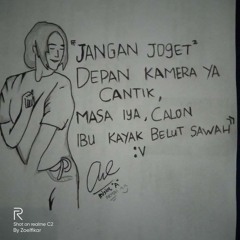 "JANGAN JOGET"
DEPAN KAMERA YA
CANTIK,
MASA IYA, CALON
IBU KAYAK BELUT SAWAH"
:V
Shot on realme C2
By Zoelfkar